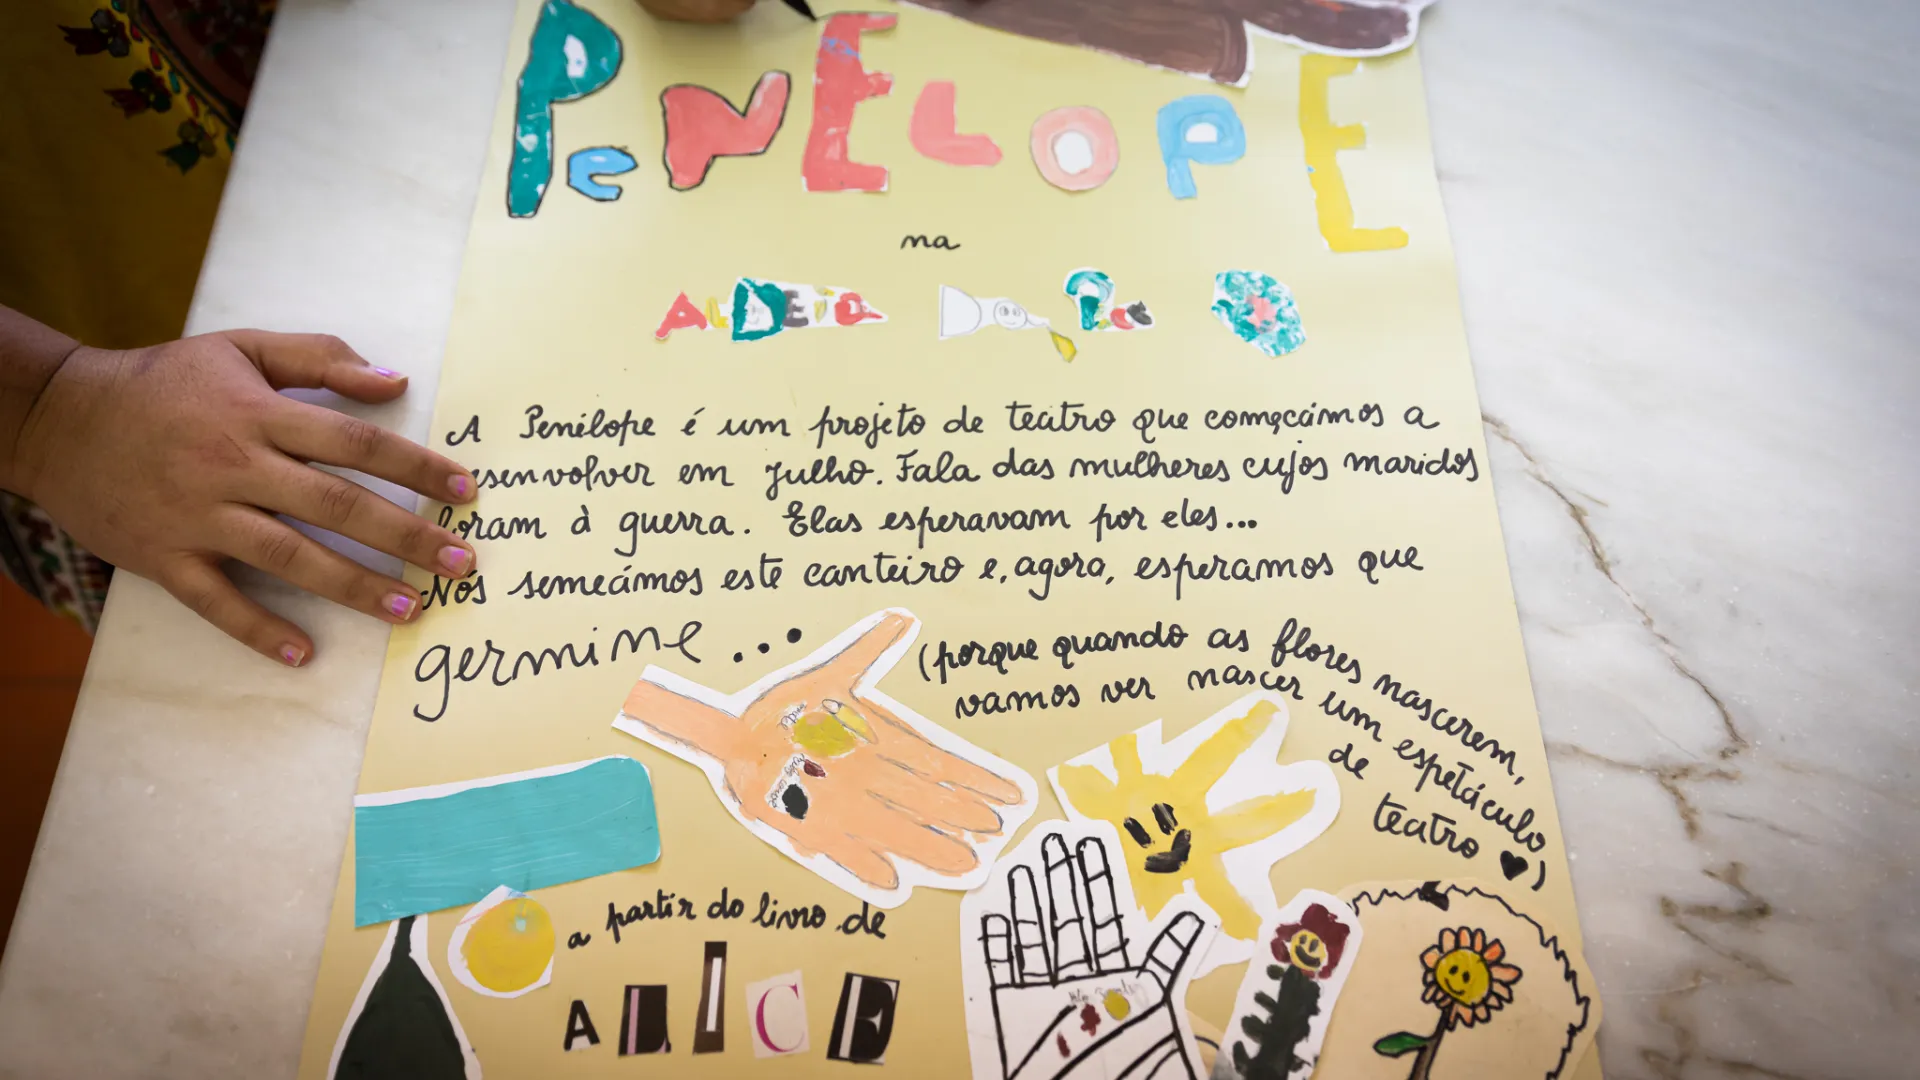 PeNELOPE
na
ALDEIA
A Penélope é um projeto de teatro que começámos a
esenvolver em julho. Fala das mulheres cujos maridos
foram à guerra. Elas esperavam por eles...
Nós semeámos este canteiro e, agora, esperamos que
germine...
(porque quando as flores nascerem,
vamos ver nascer um espetáculo
de
teatro ♥)
a partir do livro de
ALICE